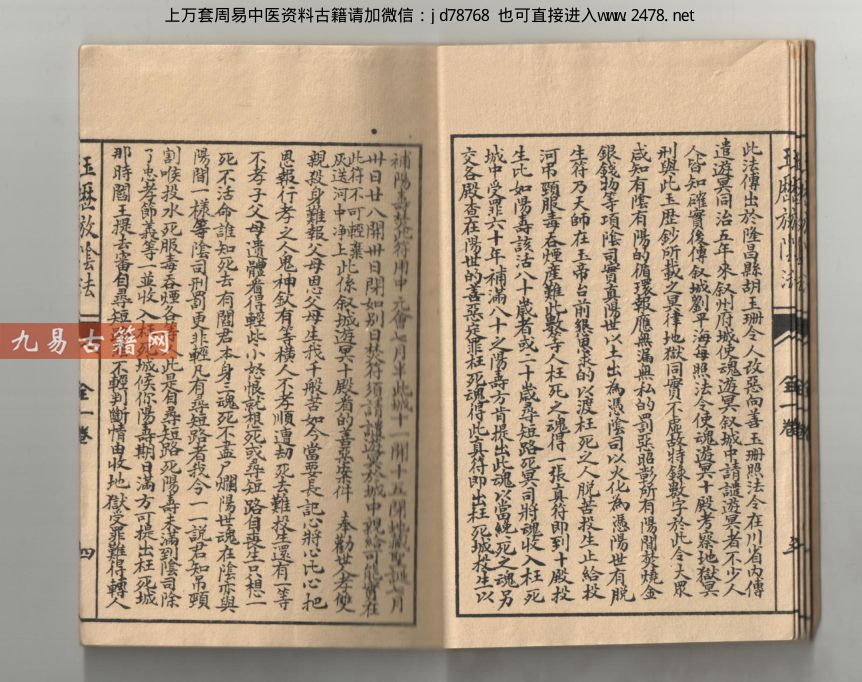 上万套周易中医资料古籍请加微信：jd78768 也可直接进入www.2478.net
此法傳出於隆昌縣胡玉珊令人改惡向善玉珊照法令在川省內傳
遣遊冥同治五年來叙州府城使魂遊冥叙城中請譴遊冥者不少人
人皆知確實後傳叙城劉平海每照法令使魂遊冥十殿考察地獄冥
刑與此玉歷鈔所載之冥律地獄同實不虛故特錄數字於此令大眾
咸知有陰有陽的循環報應無漏無私的罰惡昭彰所有陽間焚燒金
銀錢物等項陰司實真陽世以土出為憑陰司以火化為憑陽世有脫
生符乃天師在玉帝台前懇恩求的以渡枉死之人脫苦投生止給投
河吊頸服毒吞煙產難此數等人枉死之魂得一張真符即到十殿投
生比如陽壽該活八十歲者或二十歲尋短路死冥司將魂收入枉死
城中受罪六十年補滿八十之陽壽方肯提出此魂以當絕死之魂另
交各殿查在陽世的善惡定罪枉死魂得此真符即出枉死城投生以
玉歷放陰法
全一卷
補陽壽焚符用中元會七月半此城十一開十五閉地藏聖誕七月
卅日廿八開卅日閉如別日焚符須請譴遊冥於城中視給可能實在
此符不可輕棄
灰送河中净上此係叙城遊冥十殿者的善惡案件 奉勸世人孝雙
親殺身難報父母恩父母生我千般苦如今當要長記心將心比心把
恩報行孝之人鬼神欽有等橫人不孝順遭劫死去難投生還有一等
不孝子父母遺體看得輕些小怒恨就想死或尋短路自喪生只想一
死不活命誰知死去有閻君本身三魂死不盡尸爛陽世魂在陰亦與
陽間一樣等陰司刑罰更非輕凡有尋短路者我今一一說君知吊頸
割喉投水死服毒吞煙各
此是自尋短路死陽壽未滿到陰司除
了忠孝節義等
並收入枉死城侯你陽壽期日滿方可提出枉死城
那時閻王提去審自尋短
不輕判斷情由收地獄受罪難得轉人
玉歷放陰法
全一卷
四
九易古籍网